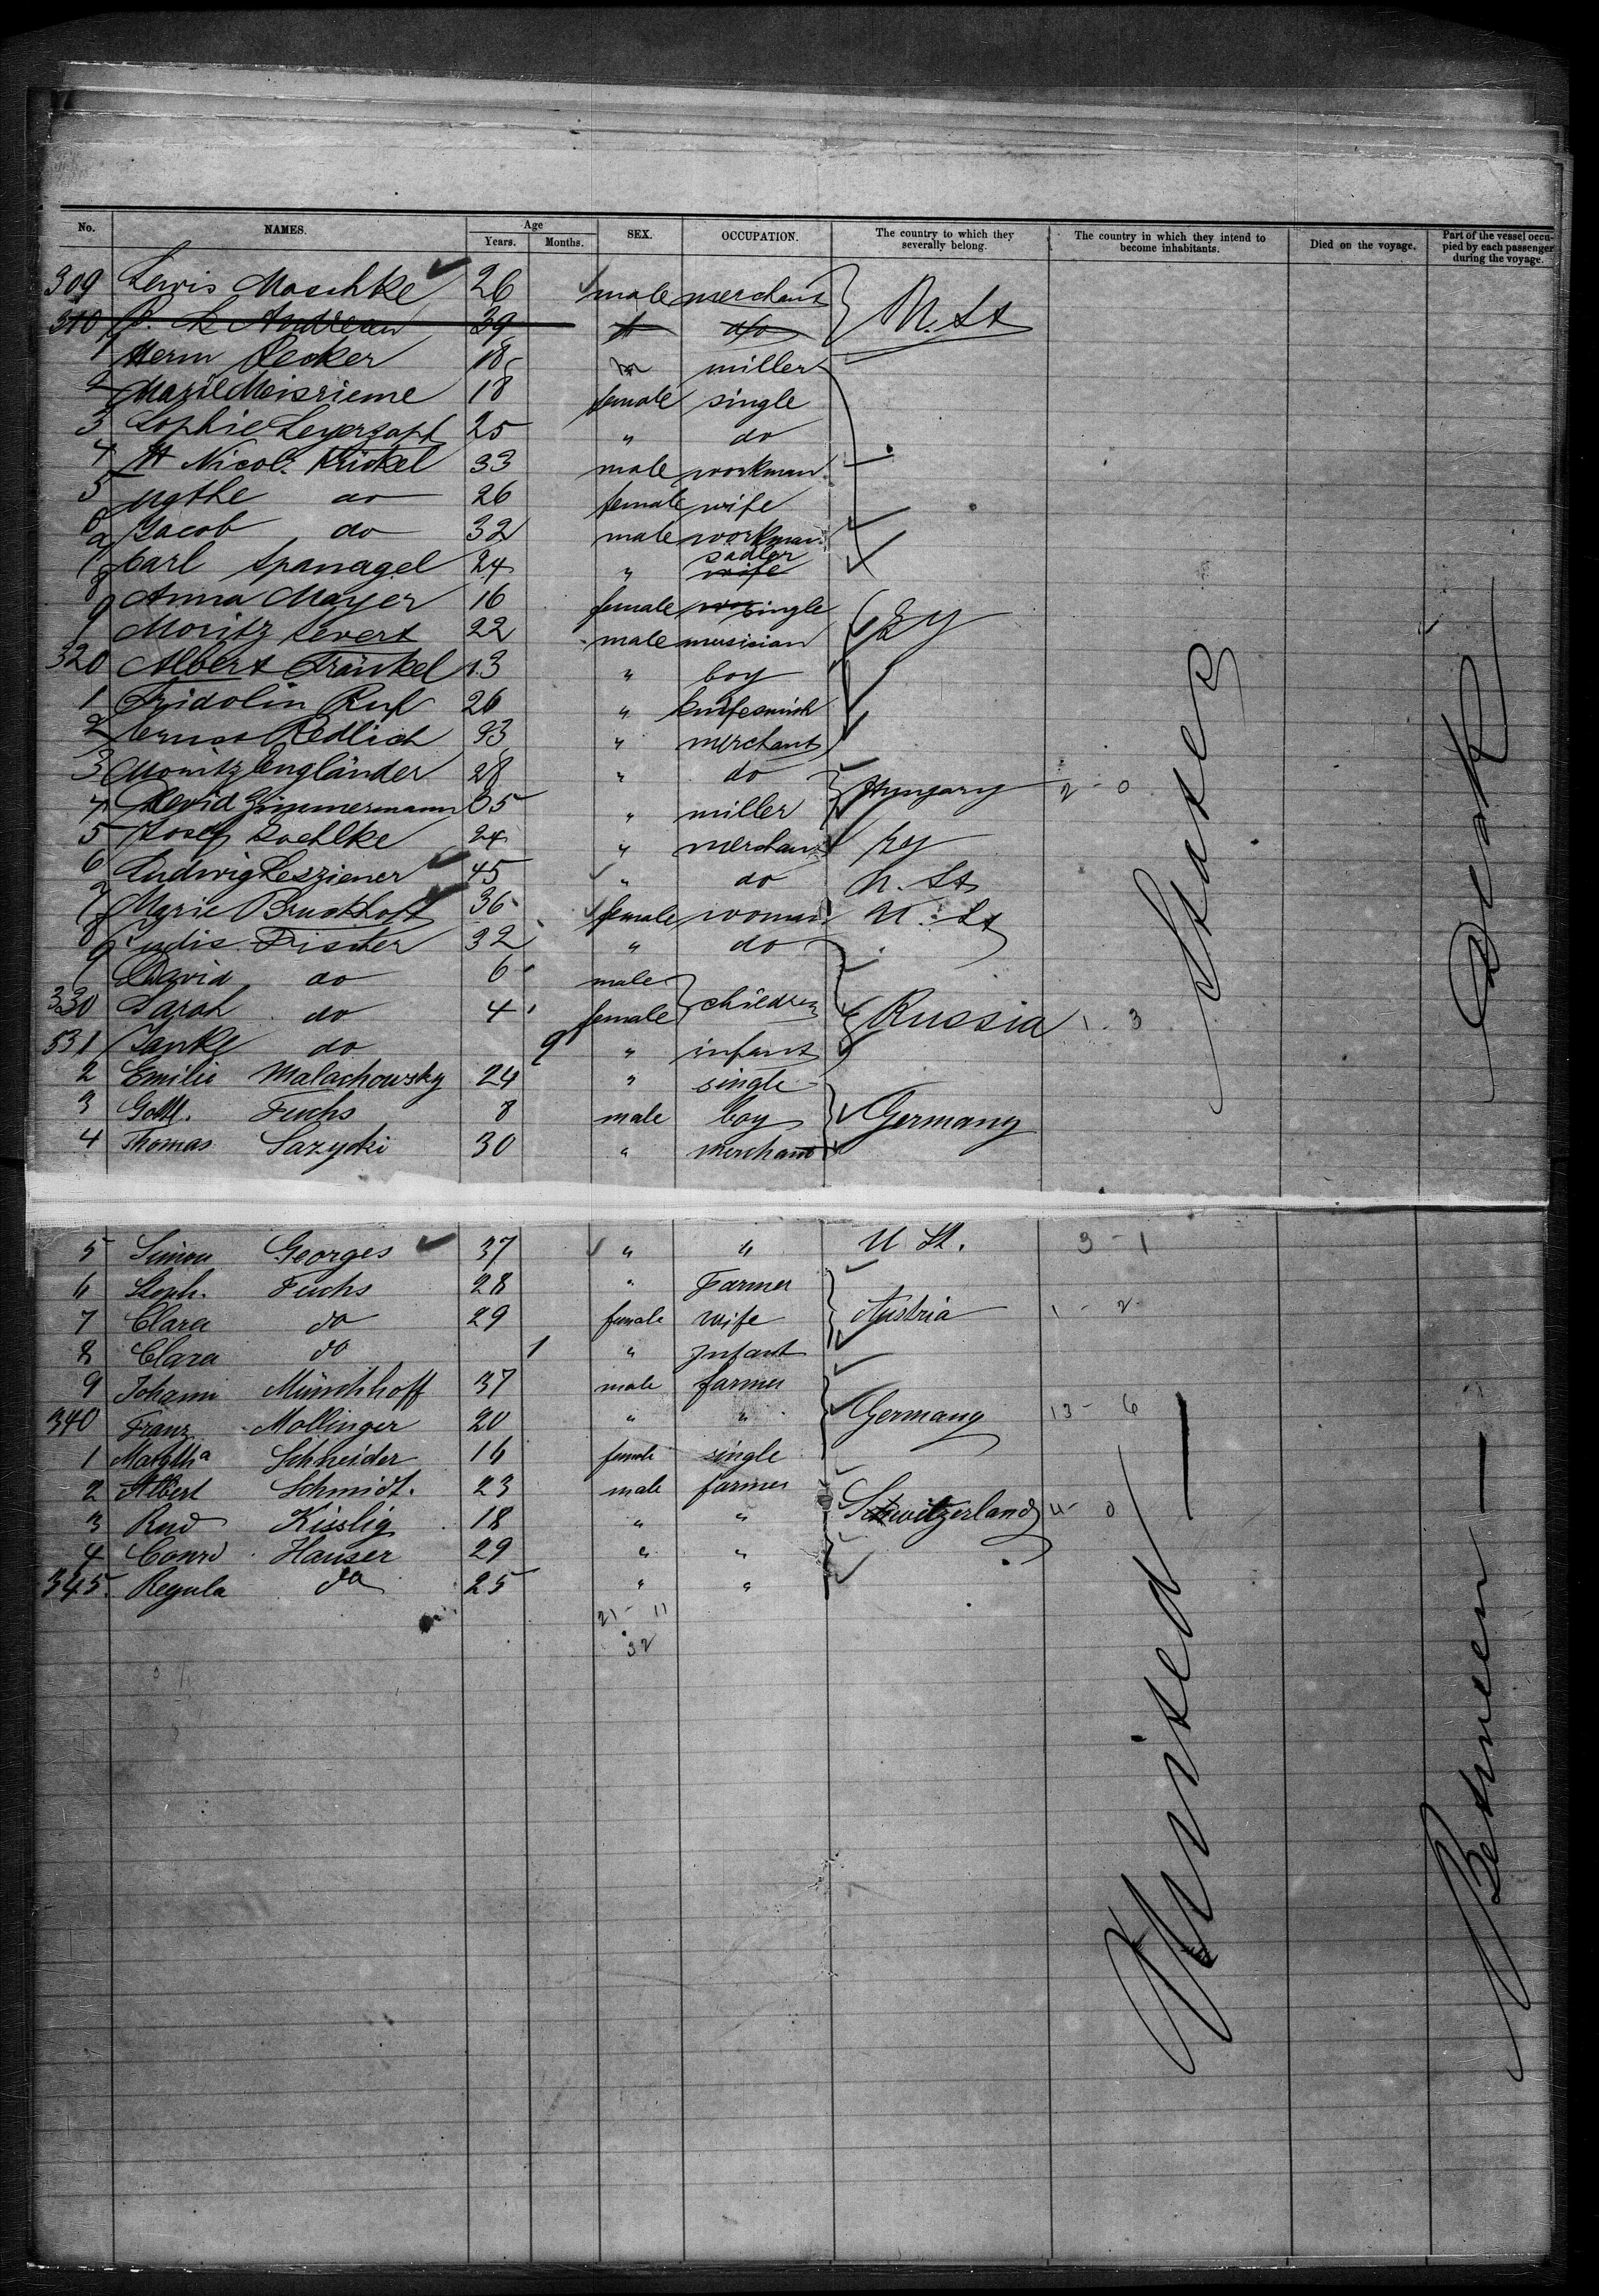 No. NAMES. Age Years. Months. SEX. OCCUPATION. The country to which they severally belong. The country in which they intend to become inhabitants. Died on the voyage. Part of the vessel occupied by each passenger during the voyage.
309 Lewis Maschke 26 male merchant U. St
310 L Andreau 39 do
1 Herm Becker 18 m miller
2 18 female single
3 Sophie Leyerzapf 25 " do
4 Nicol. Krickel 33 male workman
5 do 26 female wife
6 Jacob do 32 male workman
7 Carl Spanagel 24 " sadler wife
8 Anna Mayer 16 female single
9 Moritz Levert 22 male musician Gy
320 Albert Fränkel 13 " boy
1 Fridolin Ruf 26 " knifesmith
2 Redlich 33 " merchant
3 Moritz Engländer 28 " do Hungary 2 - 0
4 David Zimmermann 65 " miller
5 Josef 24 " merchant Gy
6 Ludwig Lesziener 45 " do U. St
7 Marie Bruckhoff 36 female woman U. St
8 Judis Fischer 32 " do
9 David do 6 male children
330 Sarah do 4 female Russia 1 - 3
331 Janke do 9 " infant
2 Emilie Malachowsky 24 " single
3 Gottl. Fuchs 8 male boy Germany
4 Thomas Sazycki 30 " merchant
5 Simon Georges 37 " " U St. 3 - 1
6 Steph. Fuchs 28 " Farmer
7 Clara do 29 female wife Austria 1 - 2
8 Clara do 1 " Infant
9 Johann Münchhoff 37 male farmer
340 Franz Mollinger 20 " " Germany 13 - 6
1 Margtha Schneider 16 female single
2 Albert Schmidt. 23 male farmer
3 Rud Kisslig 18 " " Switzerland 4 - 0
4 Conrd Hauser 29 " "
345. Regula do 25 " "
21 - 11
32
United States
Between Deck